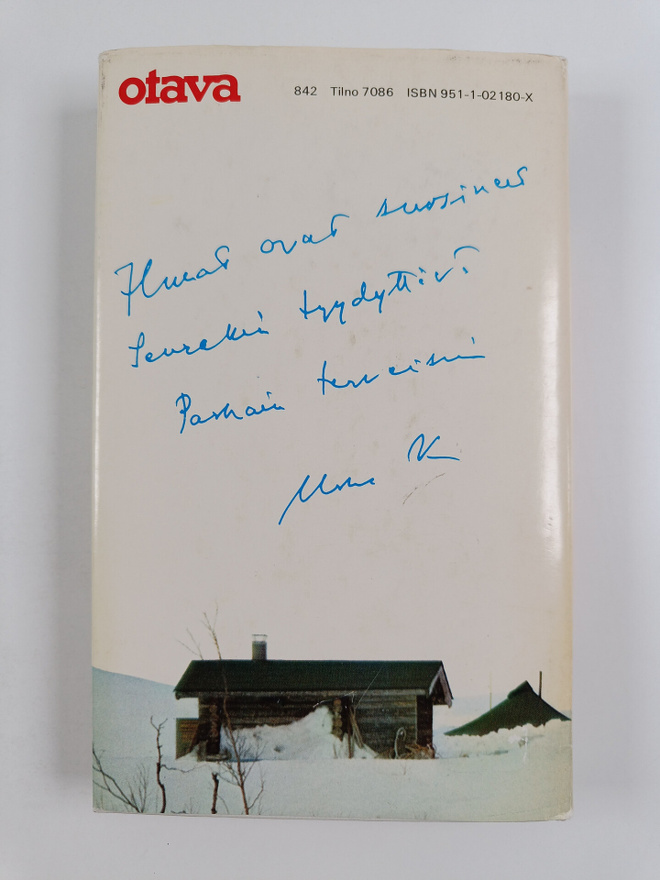 otava
842 Tilno 7086 ISBN 951-1-02180-X
Ilmat ovat suosineet
Seurakin tyydyttävä
Parhain terveisin
Urho K